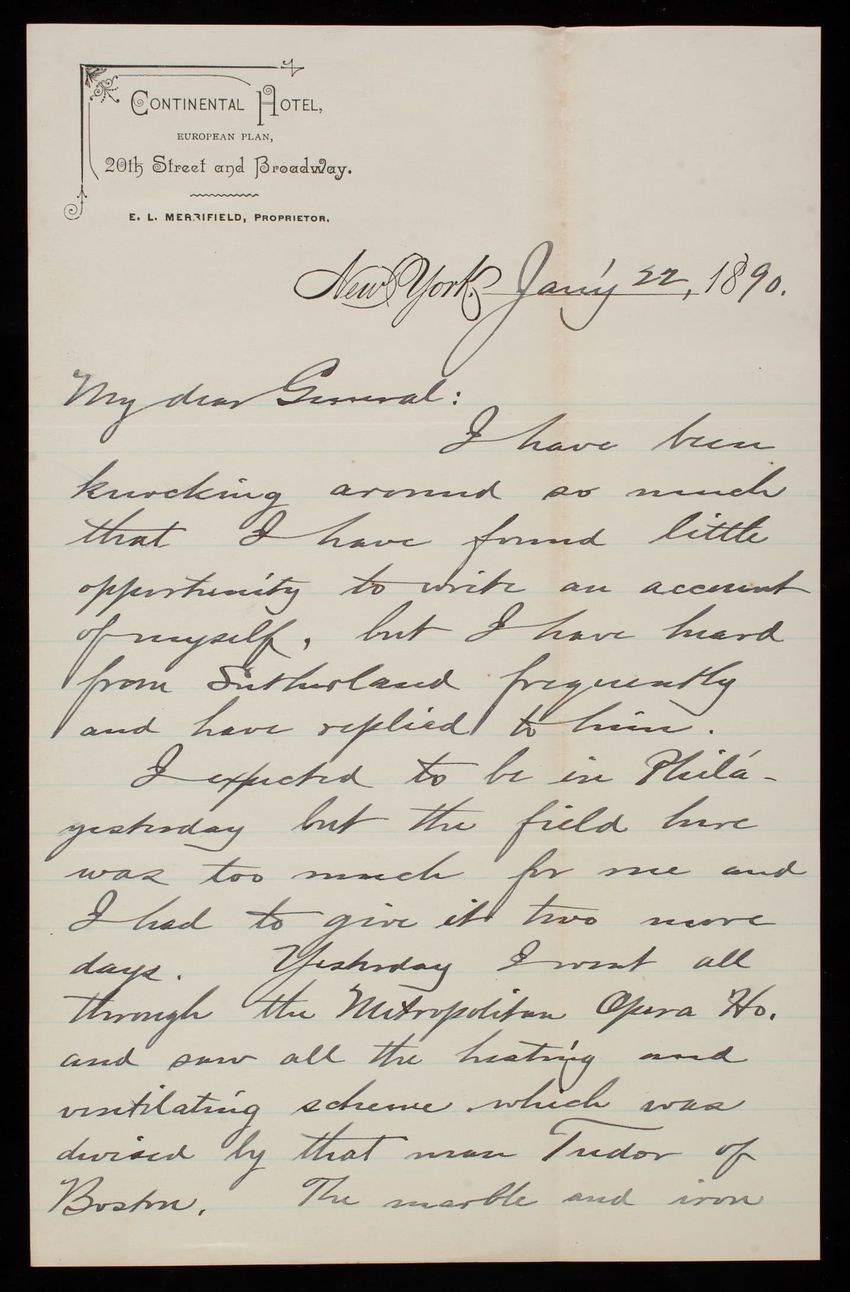 Continental Hotel,
European Plan,
20th Street and Broadway.
E. L. Merrifield, Proprietor.
New York, Jan'y 22, 1890.
My dear General:
I have been
knocking around so much
that I have found little
opportunity to write an account
of myself, but I have heard
from Sutherland frequently
and have replied to him.
I expected to be in Phila-
yesterday but the field here
was too much for me and
I had to give it two more
days. Yesterday I went all
through the Metropolitan Opera Ho.
and saw all the heating and
ventilating scheme which was
devised by that man Tudor of
Boston. The marble and iron